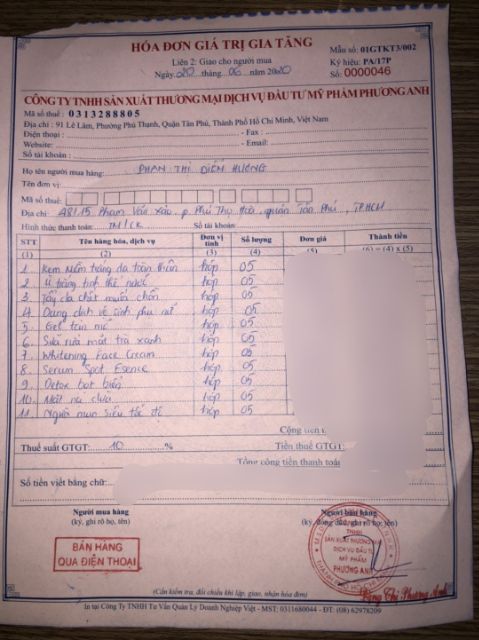 HÓA ĐƠN GIÁ TRỊ GIA TĂNG
Liên 2: Giao cho người mua
Ngày 20 tháng 06 năm 2020
Mẫu số: 01GTKT3/002
Ký hiệu: PA/17P
Số: 0000046
CÔNG TY TNHH SẢN XUẤT THƯƠNG MẠI DỊCH VỤ ĐẦU TƯ MỸ PHẨM PHƯƠNG ANH
Mã số thuế : 0313288805
Địa chỉ : 91 Lê Lâm, Phường Phú Thạnh, Quận Tân Phú, Thành Phố Hồ Chí Minh, Việt Nam
Điện thoại : - Fax :
Website: - Email:
Số tài khoản :
Họ tên người mua hàng: PHAN THỊ DIỄM HƯƠNG
Tên đơn vị:
Mã số thuế:
Địa chỉ: Phạm Văn Xảo, p. Phú Thọ Hoà, quận Tân Phú, TPHCM
Hình thức thanh toán: TM/CK Số tài khoản:
STT Tên hàng hóa, dịch vụ Đơn vị tính Số lượng Đơn giá Thành tiền
(1) (2) (3) (4) (5) (6) = (4) x (5)
1 Kem mềm trắng da toàn thân hộp 05
2 Ủ trắng tinh thể nước hộp 05
3 Tẩy da chết muối hộp 05
4 Dung dịch vệ sinh phụ nữ hộp 05
5 Gel tan mỡ hộp 05
6 Sữa rửa mặt trà xanh hộp 05
7 Whitening Face Cream hộp 05
8 Serum Spot Esence hộp 05
9 Detox bọt biển hộp 05
10 Mặt nạ dưa hộp 05
11 Ngừa mụn siêu tốc hộp 05
Cộng tiền
Thuế suất GTGT: 10 % Tiền thuế GTGT:
Tổng cộng tiền thanh toán
Số tiền viết bằng chữ:
Người mua hàng
(ký, ghi rõ họ, tên)
Người bán hàng
(ký, đóng dấu, ghi rõ họ, tên)
BÁN HÀNG
QUA ĐIỆN THOẠI
TNHH
SẢN XUẤT THƯƠNG MẠI
DỊCH VỤ ĐẦU TƯ
MỸ PHẨM
PHƯƠNG ANH
Đặng Thị Phương Anh
(Cần kiểm tra, đối chiếu khi lập, giao, nhận hóa đơn)
In tại Công Ty TNHH Tư Vấn Quản Lý Doanh Nghiệp Việt - MST: 0311680044 - ĐT: (08) 62978209